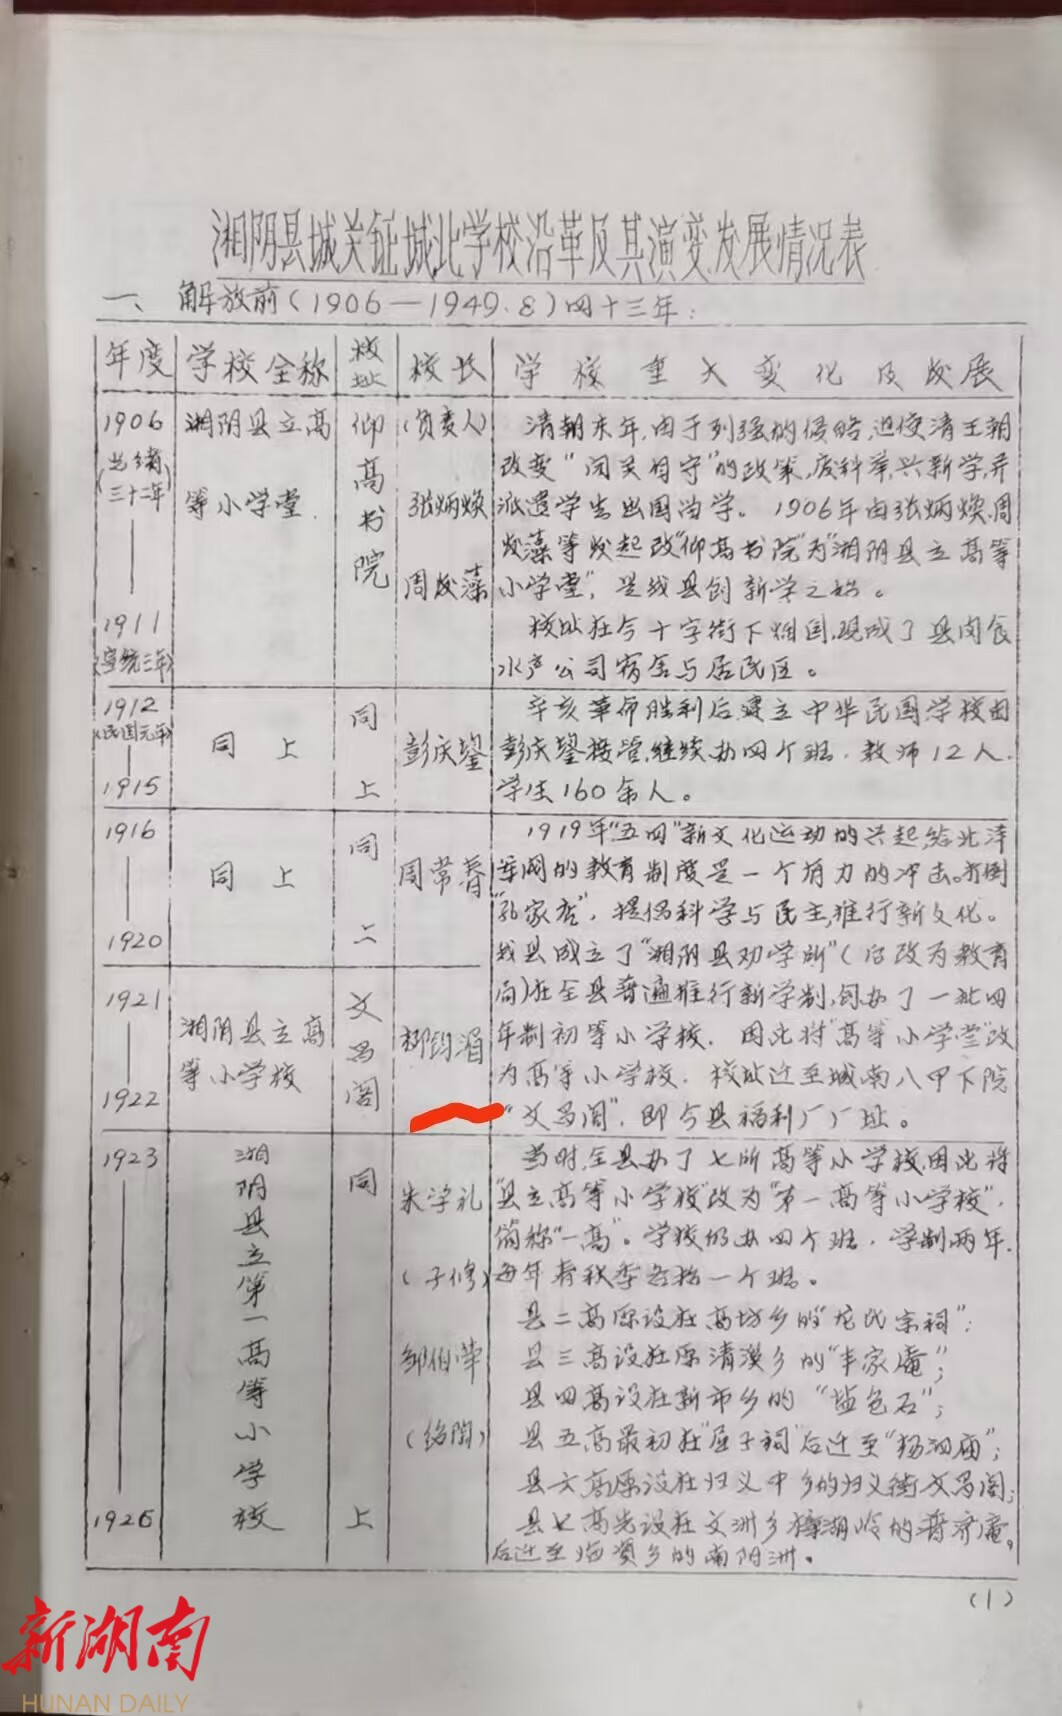 湘阴县城关鉦城北学校沿革及其演变发展情况表
一、解放前(1906—1949.8)四十三年:
年度 学校全称 校址 校长 学校重大变化及发展
1906
(光绪三十二年)
1911
(宣统三年)
湘阴县立高
等小学堂.
仰高书院
(负责人)
张炳焕
周发藻
清朝末年,由于列强的侵略,迫使清王朝
改变“闭关自守”的政策,废科举,兴新学,并
派遣学生出国留学。1906年由张炳焕,周
发藻等发起改“仰高书院”为“湘阴县立高等
小学堂”,是我县创新学之始。
校址在今十字街下烟园,现成了县肉食
水产公司宿舍与居民区。
1912
(民国元年)
1915
同上
同上
彭庆鋆
辛亥革命胜利后,建立中华民国学校由
彭庆鋆接管,继续办四个班.教师12人.
学生160余人。
1916
1920
同上
同二
周常春
1919年“五四”新文化运动的兴起,给北洋
军阀的教育制度是一个有力的冲击。打倒
“孔家店”,提倡科学与民主,推行新文化。
我县成立了“湘阴县劝学所”(后改为教育
局)在全县普遍推行新学制,创办了一批四
年制初等小学校.因此将“高等小学堂”改
为高等小学校.校址迁至城南八甲下院
“文昌阁”.即今县福利厂厂址。
1921
1922
湘阴县立高
等小学校
文昌阁
柳钧湄
1923
1926
湘阴县立第一高等小学校
同上
朱学礼
(子修)
邹伯荦
(绍闻)
当时,全县办了七所高等小学校,因此将
“县立高等小学校”改为“第一高等小学校”.
简称“一高”。学校仍办四个班.学制两年.
每年春秋季各招一个班。
县二高原设在高坊乡的“龙氏宗祠”;
县三高设在原清溪乡的“丰家庵”;
县四高设在新市乡的“盐色石”;
县五高最初在“屈子祠”后迁至“杨泗庙”;
县六高原设在归义中乡的归义街文昌阁;
县七高先设在文洲乡樟湖岭的普济庵,
后迁至临资乡的南阳洲。
(1)
新湖南
HUNAN DAILY